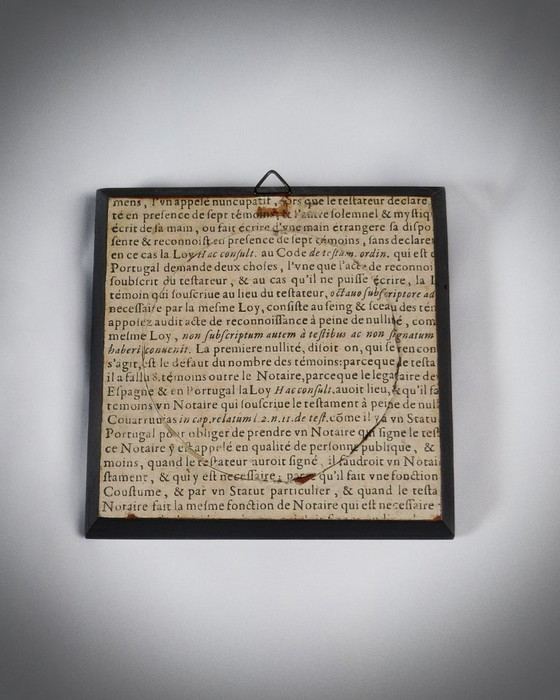 mens, l'vn appelé nuncupatif, que le testateur declare
té en presence de sept témoins, & l'autre solemnel & mystiq
écrit de sa main, ou fait écrire d'vne main etrangere sa dispo
sente & reconnoist en presence de sept témoins, sans declarer
en ce cas la Loy Hac consult. au Code de testam. ordin. qui est
Portugal demande deux choses, l'vne que l'acte de reconnoi
soubscrit du testateur, & au cas qu'il ne puisse écrire, la
témoin qui souscriue au lieu du testateur, octauo subscriptore ad
necessaire par la mesme Loy, consiste au seing & sceau des tém
apposez audit acte de reconnoissance à peine de nullité, com
mesme Loy, non subscriptum autem à testibus ac non signatum
haberi conuenit. La premiere nullité, disoit on, qui se rencon
s'agit, est le defaut du nombre des témoins: parceque le testa
il a fallu 8. témoins outre le Notaire, parceque le legataire de
Espagne & en Portugal la Loy Hac consult. auoit lieu, & qu'il fa
temoins vn Notaire qui souscriue le testament à peine de null
Couarruuias in cap. relatum 1. 2. n. 11. de test. cõme il y a vn Statu
Portugal pour obliger de prendre vn Notaire qui signe le test
ce Notaire y est appelé en qualité de personne publique, &
moins, quand le testateur auroit signé, il faudroit vn Notai
stament, & qu'il y est necessaire, parce qu'il fait vne fonction
Coustume, & par vn Statut particulier, & quand le testa
Notaire fait la mesme fonction de Notaire qui est necessaire